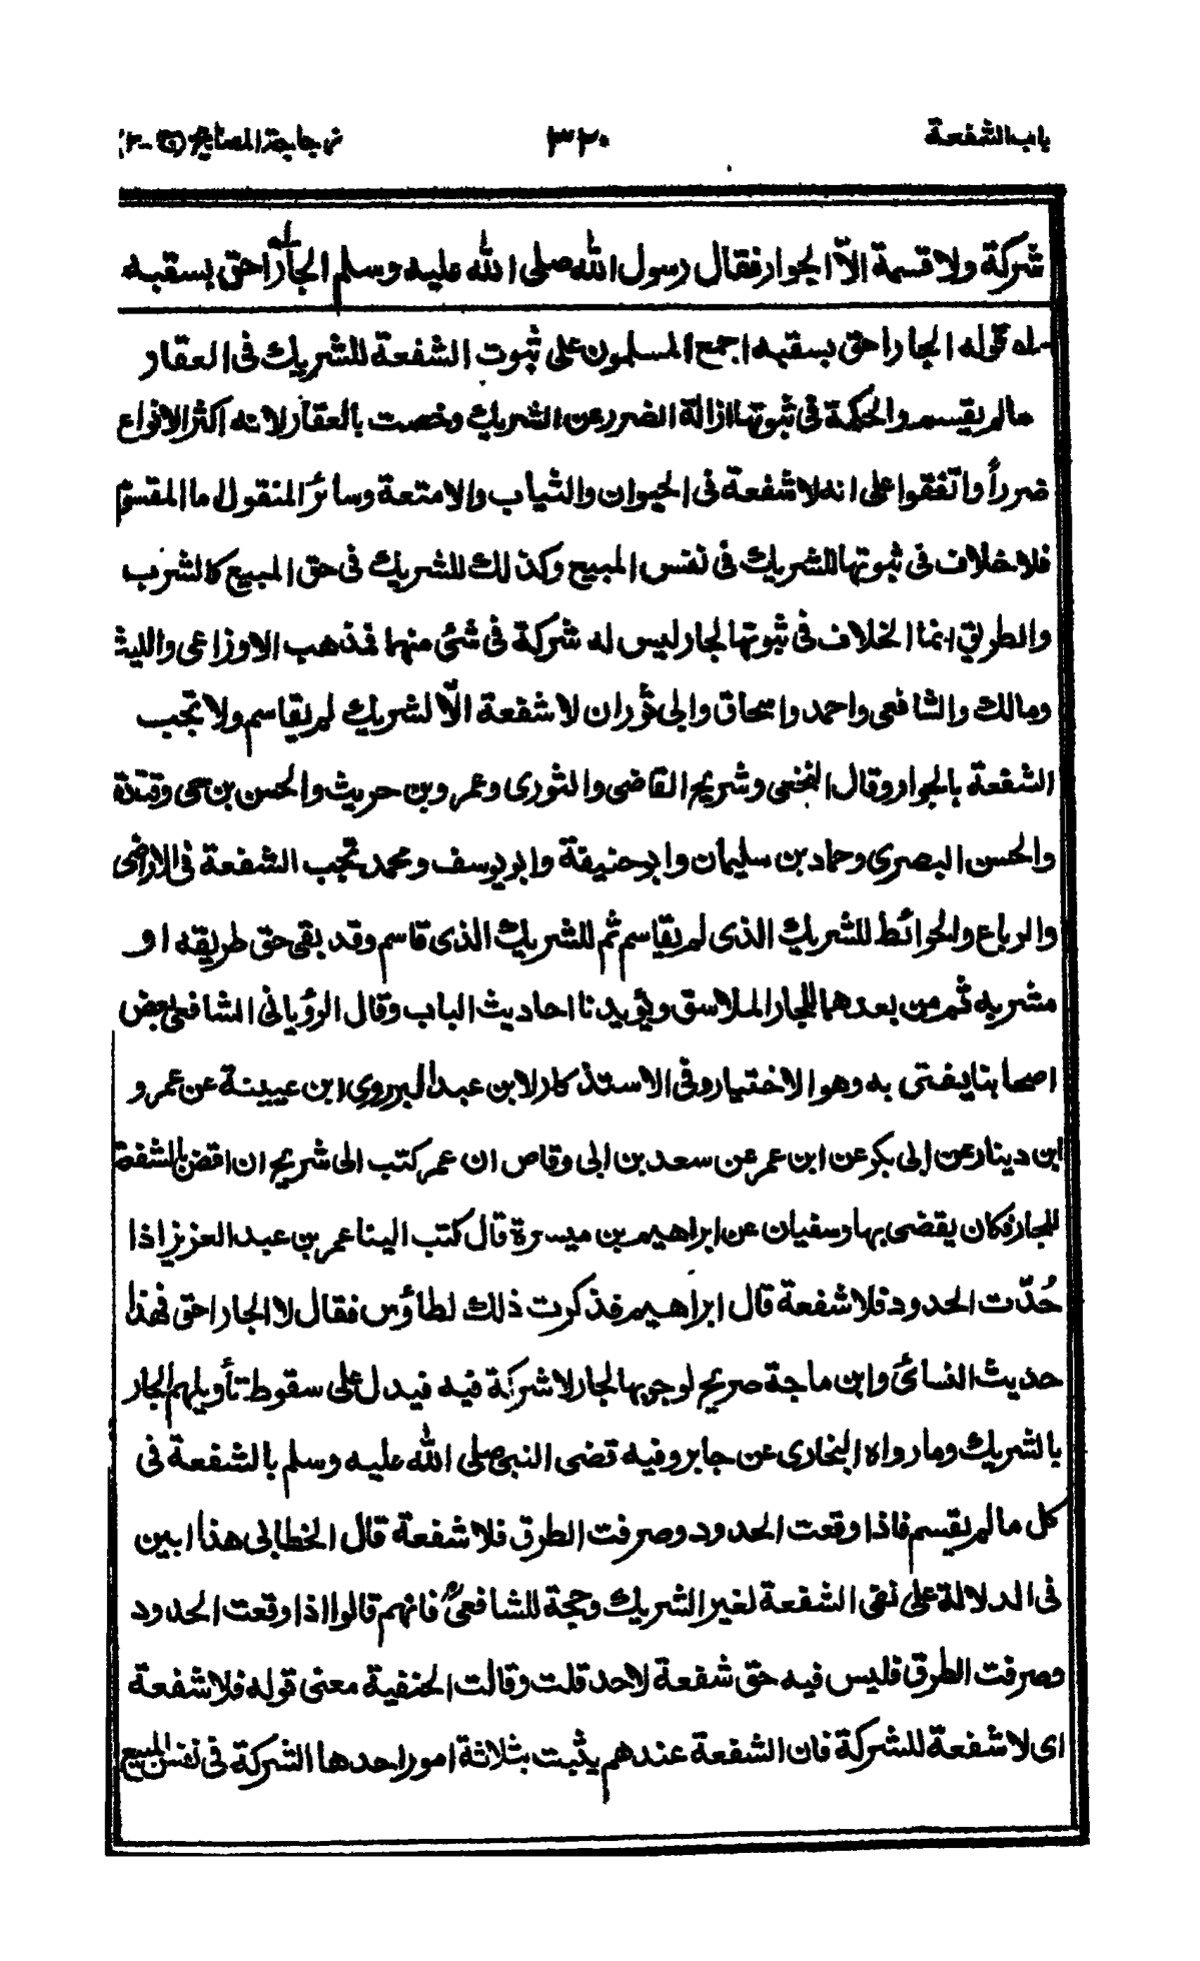 باب الشفعة ٣٢٠ زجاجة المصابيح (ج-٢)
شركة ولا قسمة الاّ الجوار فقال رسول الله صلى الله عليه وسلم الجارله احق بسقبه
له قوله الجار احق بسقبه اجمع المسلمون على ثبوت الشفعة للشريك فى العقار
مالم يقسم والحكمة فى ثبوتها ازالة الضرر عن الشريك وخصت بالعقار لانه اكثر الانواع
ضرراً واتفقوا على انه لا شفعة فى الحيوان والثياب والامتعة وسائر المنقول ما المقسم
فلا خلاف فى ثبوتها للشريك فى نفس المبيع وكذلك للشريك فى حق المبيع كالشرب
والطريق انما الخلاف فى ثبوتها لجار ليس له شركة فى شئ منهما فذهب الاوزاعى والليث
ومالك والشافعى واحمد واسحاق وابى ثور ان لا شفعة الاّ لشريك لم يقاسم ولا تجب
الشفعة بالجوار وقال النخعى وشريح القاضى والثورى وعمرو بن حريث والحسن بن حى وقتدة
والحسن البصرى وحماد بن سليمان وابو حنيفة وابو يوسف ومحمد تجب الشفعة فى الاراضى
والرباع والحوائط للشريك الذى لم يقاسم ثم للشريك الذى قاسم وقد بقى حق طريقه او
مشربه ثم من بعدهما للجار الملاسق ويؤيدنا احاديث الباب وقال الرؤيانى الشافعى بعض
اصحابنا يفتى به وهو الاختيار وفى الاستذكار لابن عبد البر روى ابن عيينة عن عمرو
ابن دينار عن ابى بكر عن ابن عمر عن سعد بن ابى وقاص ان عمر كتب الى شريح ان اقض بالشفعة
للجار فكان يقضى بها وسفيان عن ابراهيم بن ميسرة قال كتب الينا عمر بن عبد العزيز اذا
حُدّت الحدود فلا شفعة قال ابراهيم فذكرت ذلك لطاؤس فقال لا الجار احق فهذا
حديث النسائى وابن ماجة صريح لوجوبها لجار لا شركة فيه فيدل على سقوط تأويلهم الجار
بالشريك وما رواه البخارى عن جابر وفيه قضى النبى صلى الله عليه وسلم بالشفعة فى
كل مالم يقسم فاذا وقعت الحدود وصرفت الطرق فلا شفعة قال الخطابى هذا ابين
فى الدلالة على نفى الشفعة لغير الشريك وحجة للشافعىؒ فانهم قالوا اذا وقعت الحدود
وصرفت الطرق فليس فيه حق شفعة لاحد قلت وقالت الحنفية معنى قوله فلا شفعة
اى لا شفعة للشركة فان الشفعة عندهم يثبت بثلاثة امور احدها الشركة فى نفس المبيع